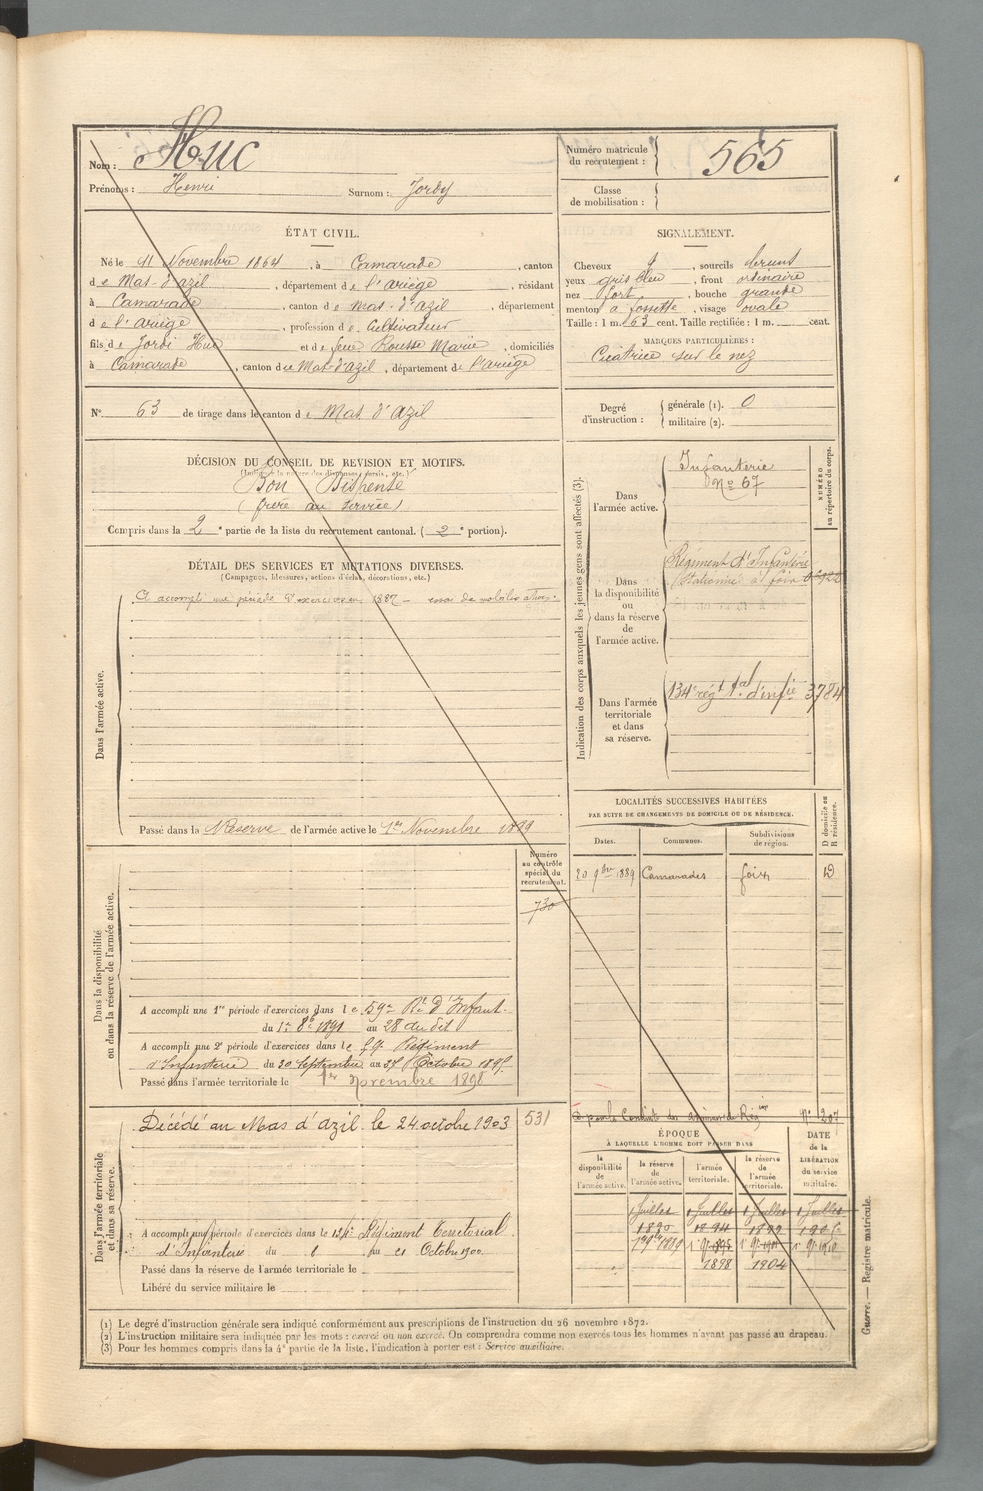 Nom : Huc
Prénoms : Henri Surnom : Jordy
Numéro matricule du recrutement : 565
Classe de mobilisation :
ÉTAT CIVIL.
Né le 11 Novembre 1864, à Camarade, canton
de Mas-d'azil, département de l'ariège, résidant
à Camarade, canton de Mas-d'azil, département
de l'ariège, profession de Cultivateur
fils de Jordi Huc et de feue Rousse Marie, domiciliés
à Camarade, canton de Mas-d'azil, département de l'ariège
SIGNALEMENT.
Cheveux , sourcils bruns
yeux gris bleu, front ordinaire
nez fort, bouche grande
menton à fossette, visage ovale
Taille : 1 m. 63 cent. Taille rectifiée : 1 m. cent.
MARQUES PARTICULIÈRES :
Cicatrice sur le nez
N° 63 de tirage dans le canton de Mas d'azil
Degré d'instruction : générale (1). 0
militaire (2).
DÉCISION DU CONSEIL DE REVISION ET MOTIFS.
Bon Dispensé
(frère au service)
Compris dans la 2e partie de la liste du recrutement cantonal. (2e portion).
DÉTAIL DES SERVICES ET MUTATIONS DIVERSES.
(Campagnes, blessures, actions d'éclat, décorations, etc.)
Dans l'armée active.
A accompli une période d'exercices en 1887 - essai de mobilisation.
Passé dans la Réserve de l'armée active le 1er Novembre 1889
Indication des corps auxquels les jeunes gens sont affectés (3).
NUMÉRO au répertoire du corps.
Dans l'armée active.
Infanterie
No 67
Dans la disponibilité ou dans la réserve de l'armée active.
Régiment d'Infanterie
Stationné à foix
Dans l'armée territoriale et dans sa réserve.
134e régt tal d'infie 3784
LOCALITÉS SUCCESSIVES HABITÉES
PAR SUITE DE CHANGEMENTS DE DOMICILE OU DE RÉSIDENCE.
Dates. Communes. Subdivisions de région. D domicile ou R résidence.
20 9bre 1889 Camarades foix D
Dans la disponibilité ou dans la réserve de l'armée active.
Numéro au contrôle spécial du recrutement.
730
A accompli une 1re période d'exercices dans le 59e Rt d'Infant.
du 1er 8bre 1891 au 28 du dit
A accompli une 2e période d'exercices dans le 59 Régiment
d'Infanterie du 30 Septembre au 27 Octobre 1895
Passé dans l'armée territoriale le 1er Novembre 1898
Dans l'armée territoriale et dans sa réserve.
Décédé au Mas d'azil le 24 octobre 1903 531
A accompli une période d'exercices dans le 134e Régiment Territorial
d'Infanterie du au 21 Octobre 1900
Passé dans la réserve de l'armée territoriale le
Libéré du service militaire le
N° 207
ÉPOQUE
À LAQUELLE L'HOMME DOIT PASSER DANS
DATE de la LIBÉRATION du service militaire.
la disponibilité de l'armée active. la réserve de l'armée active. l'armée territoriale. la réserve de l'armée territoriale.
1 Juillet 1 Juillet 1 Juillet 1 Juillet
1890 1894 1899 1905
1er 9bre 1889 1er 9bre 1895 1er 9bre 1901 1er 9bre 1910
1898 1904
(1) Le degré d'instruction générale sera indiqué conformément aux prescriptions de l'instruction du 26 novembre 1872.
(2) L'instruction militaire sera indiquée par les mots : exercé ou non exercé. On comprendra comme non exercés tous les hommes n'ayant pas passé au drapeau.
(3) Pour les hommes compris dans la 4e partie de la liste, l'indication à porter est : Service auxiliaire.
Guerre. — Registre matricule.